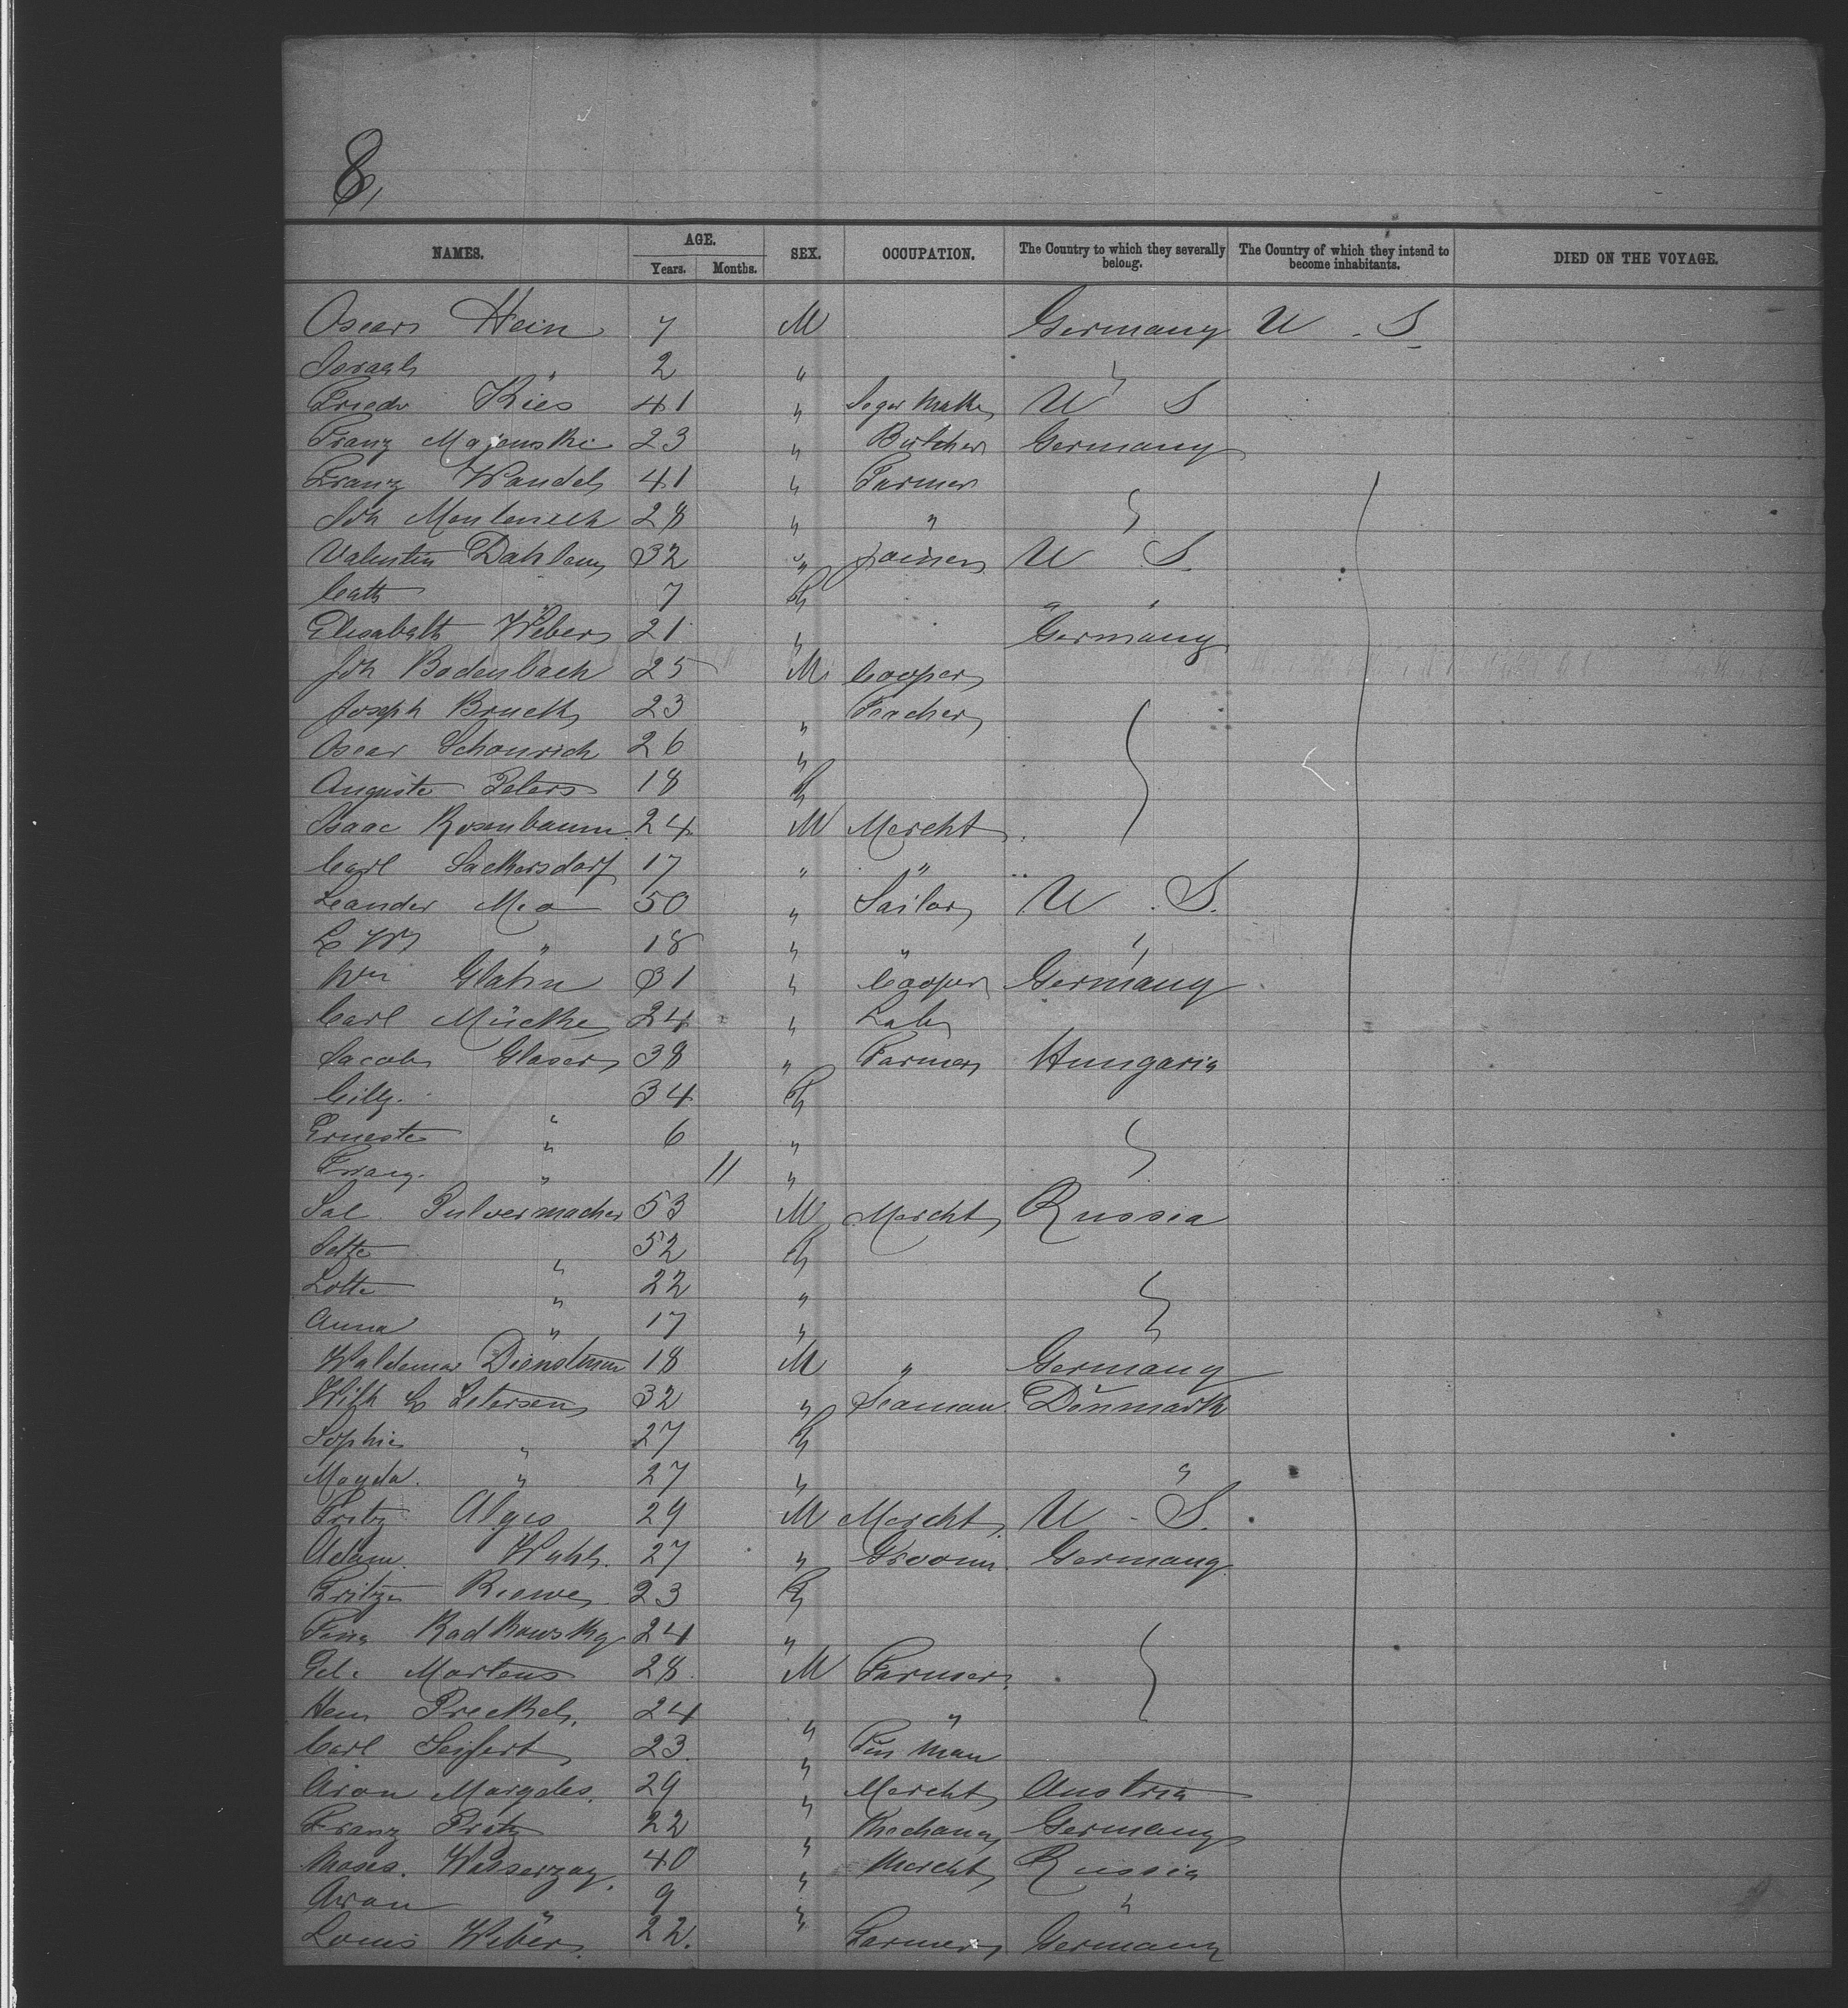 8,
NAMES. AGE. SEX. OCCUPATION. The Country to which they severally belong. The Country of which they intend to become inhabitants. DIED ON THE VOYAGE.
Years. Months.
Oscar Hein 7 M Germany U. S.
" 2 " "
Friedr Kies 41 " Segar Maker U S
Franz Majewski 23 " Butcher Germany
Franz Wandel 41 " Farmer
Joh 28 " "
Valentin Dahlem 32 " Joiner U S.
Cath " 7 F " "
Elisabeth Weber 21 " Germany
Joh Bodenbach 25 M Cooper
Joseph Brueck 23 " Teacher
Oscar Schonrich 26 "
Auguste Peters 18 F
Isaac Rosenbaum 24 M Mercht
Carl Sackersdorf 17 " "
Leander 50 " Sailor U. S.
" 18 " " "
Wm Glahn 31 " Cooper Germany
Carl Mücke 24 " Lab
Jacob Glaser 38 " Farmer Hungaria
Cilly " 34 F
Ernest " 6 "
Franz " 11 "
Sal Pulvermacher 53 M Mercht Russia
Jette " 52 F
Lotte " 22 "
Anna " 17 "
Waldemar 18 M " Germany
Wilh Petersen 32 " Seaman Denmark
Sophie " 27 F
Magda " 27 " "
Fritz 29 M Mercht U. S.
Adam Wahl 27 " Groom Germany
23 F
Radkowsky 24 "
Martens 28 M Farmer
Herm Preckel 24 " "
Carl Seifert 23 "
Aron Margeles 29 " Mercht Austria
Franz Pretz 22 " Mechanic Germany
Moses Wasserzug 40 " Mercht Russia
Aron " 9 " "
Louis Weber 22 " Farmer Germany